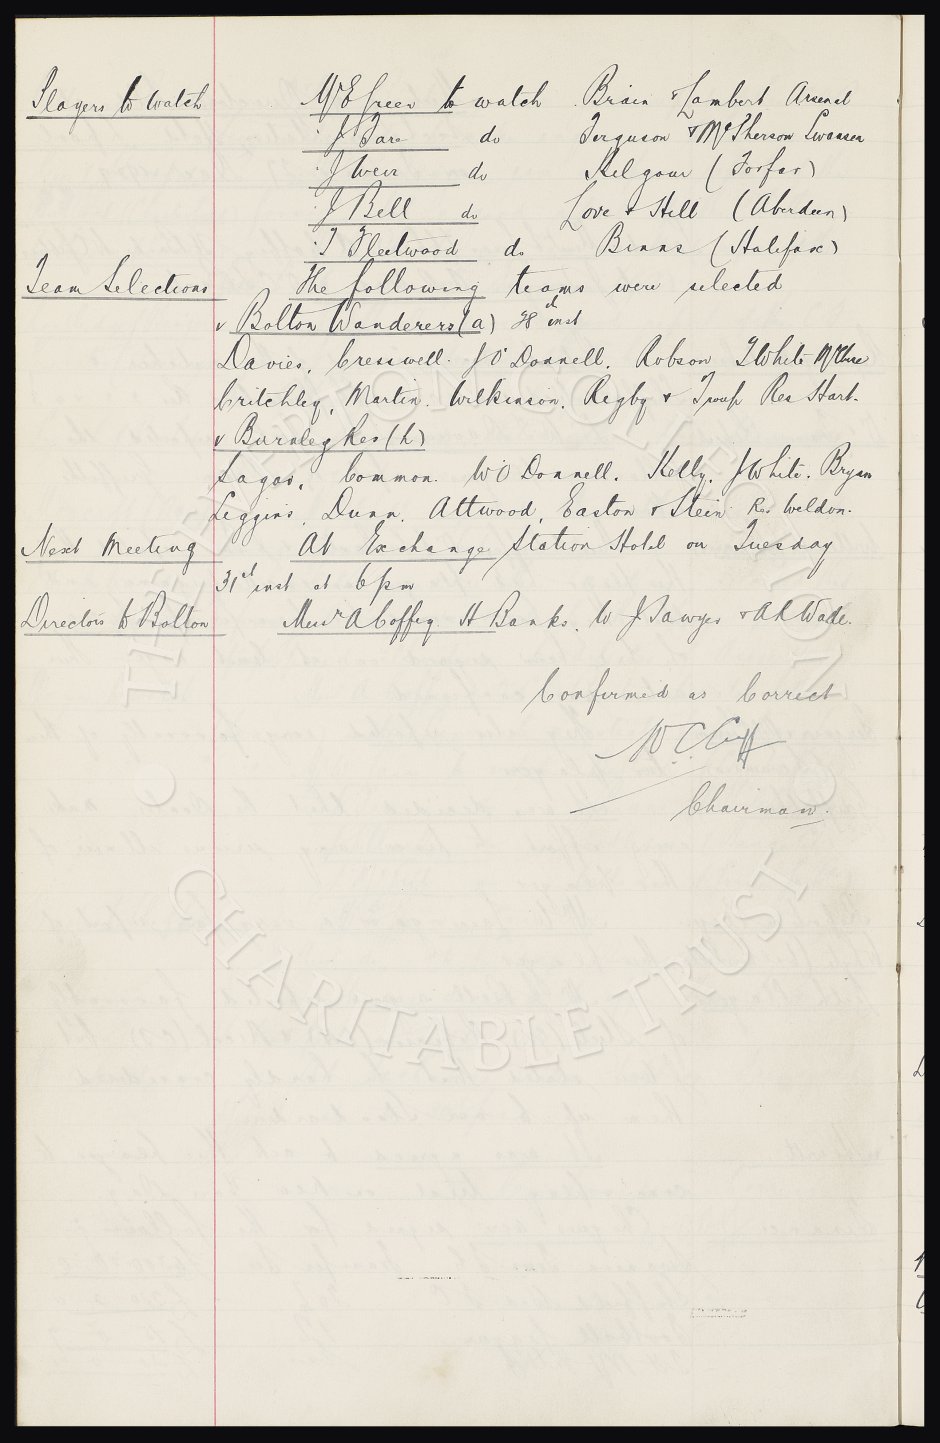 Players to watch Mr E Green to watch Brain & Lambert Arsenal
" J Fare do Ferguson & McPherson Swansea
" J Weir do Kilgour (Forfar)
" J Bell do Love & Hill (Aberdeen)
" T Fleetwood do Binns (Halifax)
Team Selections The following teams were selected
v Bolton Wanderers (a) 28th inst
Davies, Cresswell. J O'Donnell. Robson T White McClure
Critchley, Martin. Wilkinson. Rigby & Troup Res Hart.
v Burnley Res (h)
Sagar, Common. W O'Donnell. Kelly. J White. Bryan
Liggins, Dunn. Attwood, Easton & Stein Res Weldon.
Next Meeting At Exchange Station Hotel on Tuesday
31st inst at 6 pm
Directors to Bolton Messrs A Coffey. H Banks. W J Sawyer & A R Wade.
Confirmed as Correct
W C Cuff
Chairman.
THE EVERTON COLLECTION
CHARITABLE TRUST